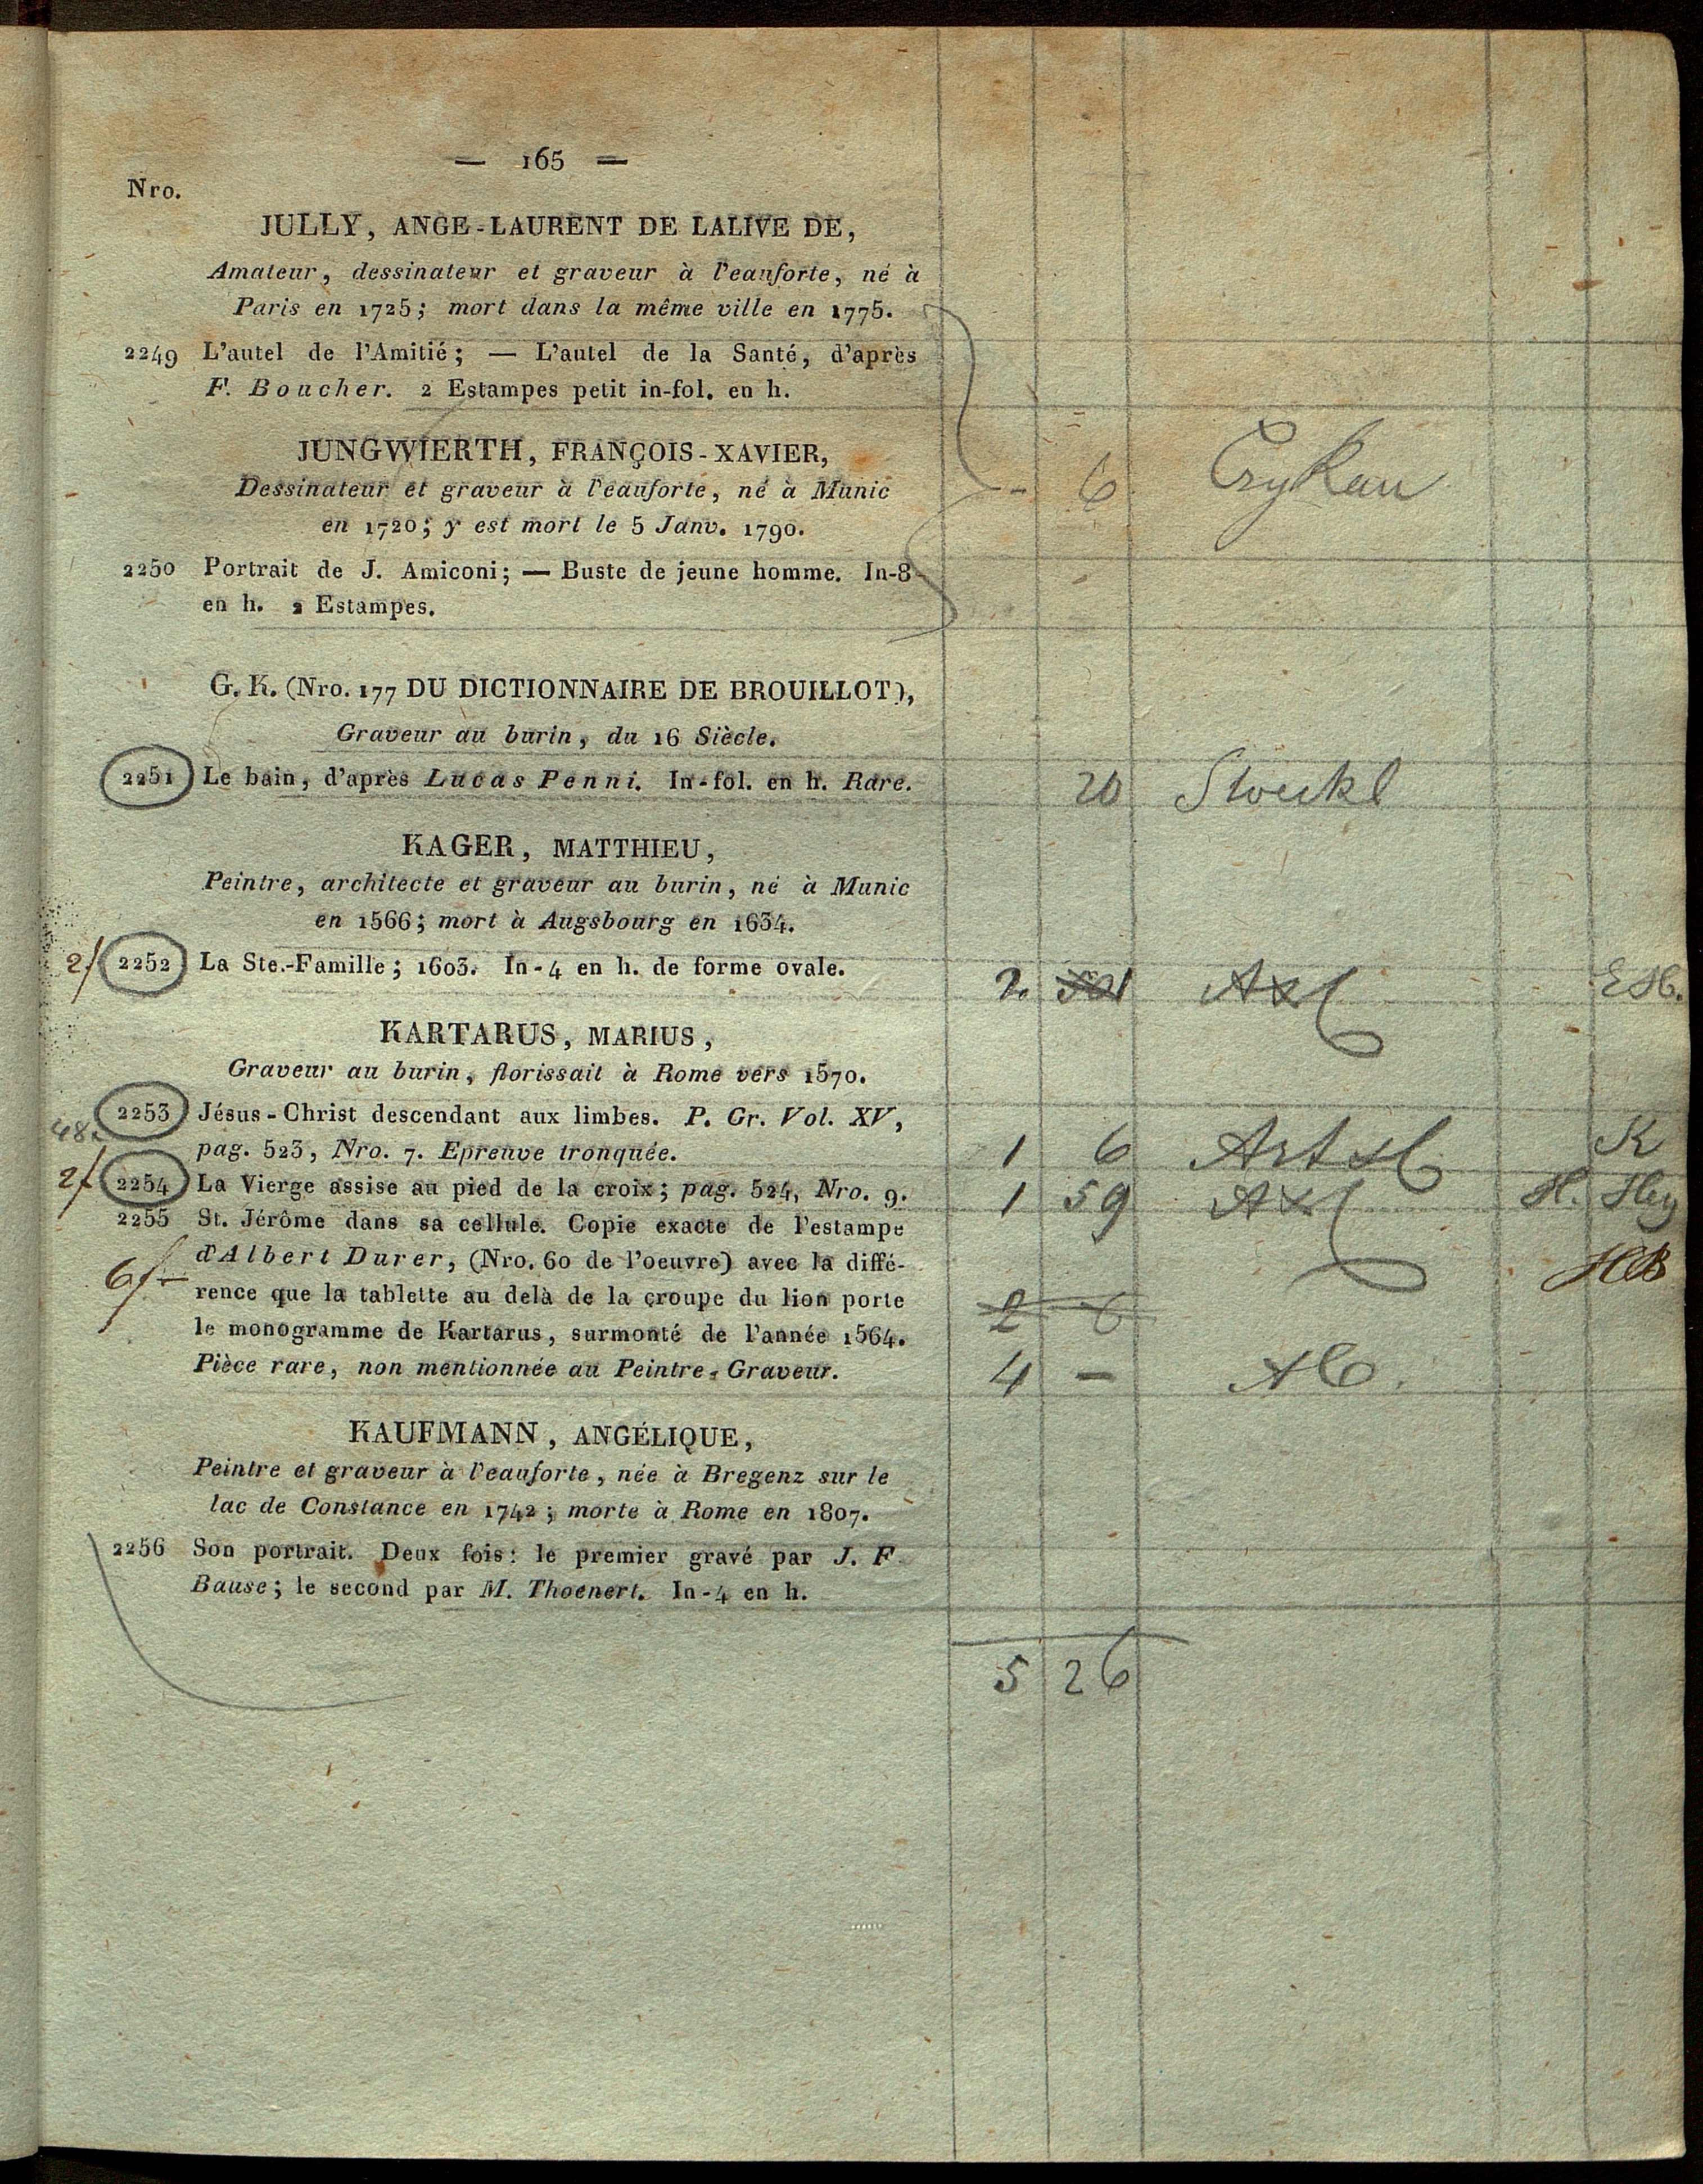 — 165 —
Nro.
JULLY, ANGE-LAURENT DE LALIVE DE,
Amateur, dessinateur et graveur à l'eauforte, né à
Paris en 1725; mort dans la même ville en 1775.
2249 L'autel de l'Amitié; — L'autel de la Santé, d'après
F. Boucher. 2 Estampes petit in-fol. en h.
JUNGWIERTH, FRANÇOIS-XAVIER,
Dessinateur et graveur à l'eauforte, né à Munic
- 6
en 1720; y est mort le 5 Janv. 1790.
2250 Portrait de J. Amiconi; — Buste de jeune homme. In-8
en h. 2 Estampes.
G. K. (Nro. 177 DU DICTIONNAIRE DE BROUILLOT),
Graveur au burin, du 16 Siècle.
2251 Le bain, d'après Lucas Penni. In-fol. en h. Rare. 20 Stoeckl
KAGER, MATTHIEU,
Peintre, architecte et graveur au burin, né à Munic
en 1566; mort à Augsbourg en 1634.
2f 2252 La Ste.-Famille; 1603. In-4 en h. de forme ovale. 2.
KARTARUS, MARIUS,
Graveur au burin, florissait à Rome vers 1570.
2253 Jésus-Christ descendant aux limbes. P. Gr. Vol. XV,
48. pag. 523, Nro. 7. Epreuve tronquée. 1 6 Art K
2f 2254 La Vierge assise au pied de la croix; pag. 524, Nro. 9. 1 59 H.
2255 St. Jérôme dans sa cellule. Copie exacte de l'estampe
d'Albert Durer, (Nro. 60 de l'oeuvre) avec la diffé-
6f rence que la tablette au delà de la croupe du lion porte 2 6
le monogramme de Kartarus, surmonté de l'année 1564.
Pièce rare, non mentionnée au Peintre-Graveur. 4 -
KAUFMANN, ANGÉLIQUE,
Peintre et graveur à l'eauforte, née à Bregenz sur le
lac de Constance en 1742; morte à Rome en 1807.
2256 Son portrait. Deux fois: le premier gravé par J. F.
Bause; le second par M. Thoenert. In-4 en h.
5 26